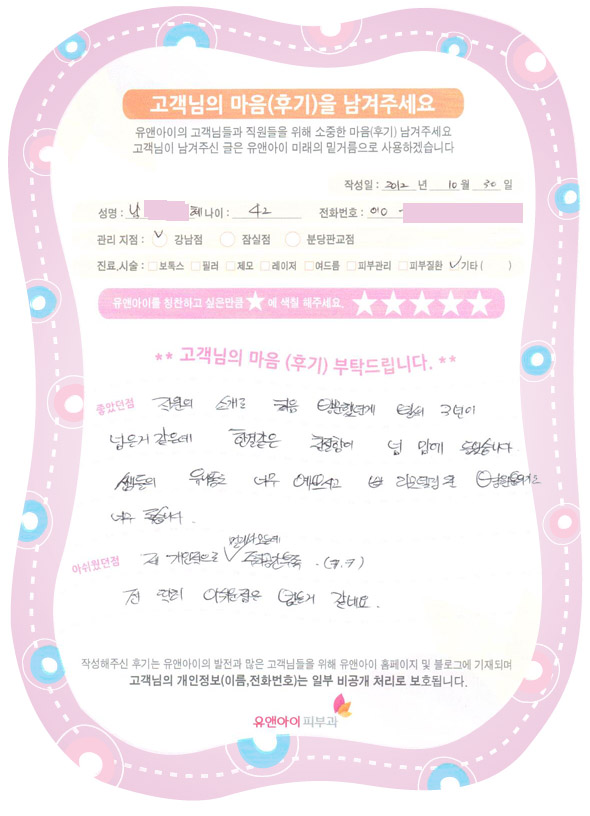 고객님의 마음(후기)을 남겨주세요
유앤아이의 고객님들과 직원들을 위해 소중한 마음(후기) 남겨주세요
고객님이 남겨주신 글은 유앤아이 미래의 밑거름으로 사용하겠습니다
작성일 : 2012 년 10 월 30 일
성명 : 남 나이 : 42 전화번호 : 010 -
관리 지점 : 강남점 잠실점 분당판교점
진료,시술 : 보톡스 필러 제모 레이저 여드름 피부관리 피부질환 기타 ( )
유앤아이를 칭찬하고 싶은만큼 ★ 에 색칠 해주세요. ★★★★★
** 고객님의 마음 (후기) 부탁드립니다. **
좋았던점 직원의 소개로 처음 벌써 2년이
넘은거 같은데 한결같은 친절함이 넘 맘에 듭니다
쌤들의 너무 예쁘시고 넘
너무 좋습니다.
아쉬웠던점 저 개인적으로 주차공간부족 . (ㅋ.ㅋ)
전 딱히 아쉬운점은 없는거 같네요.
작성해주신 후기는 유앤아이의 발전과 많은 고객님들을 위해 유앤아이 홈페이지 및 블로그에 기재되며
고객님의 개인정보(이름,전화번호)는 일부 비공개 처리로 보호됩니다.
유앤아이 피부과